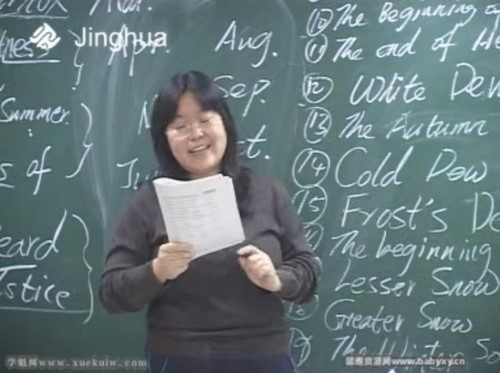 Jinghua
Apr.
Aug.
Sep.
Summer
s of
eard
stice
10 The Beginning o
11 The end of He
12 White Dew
13 The Autumn
14 Cold Dew
15 Frost's De
The beginning
Lesser Snow
Greater Snow
19 The Winter So
学魁网www.xuekuiw.com
www.babyxy.cn